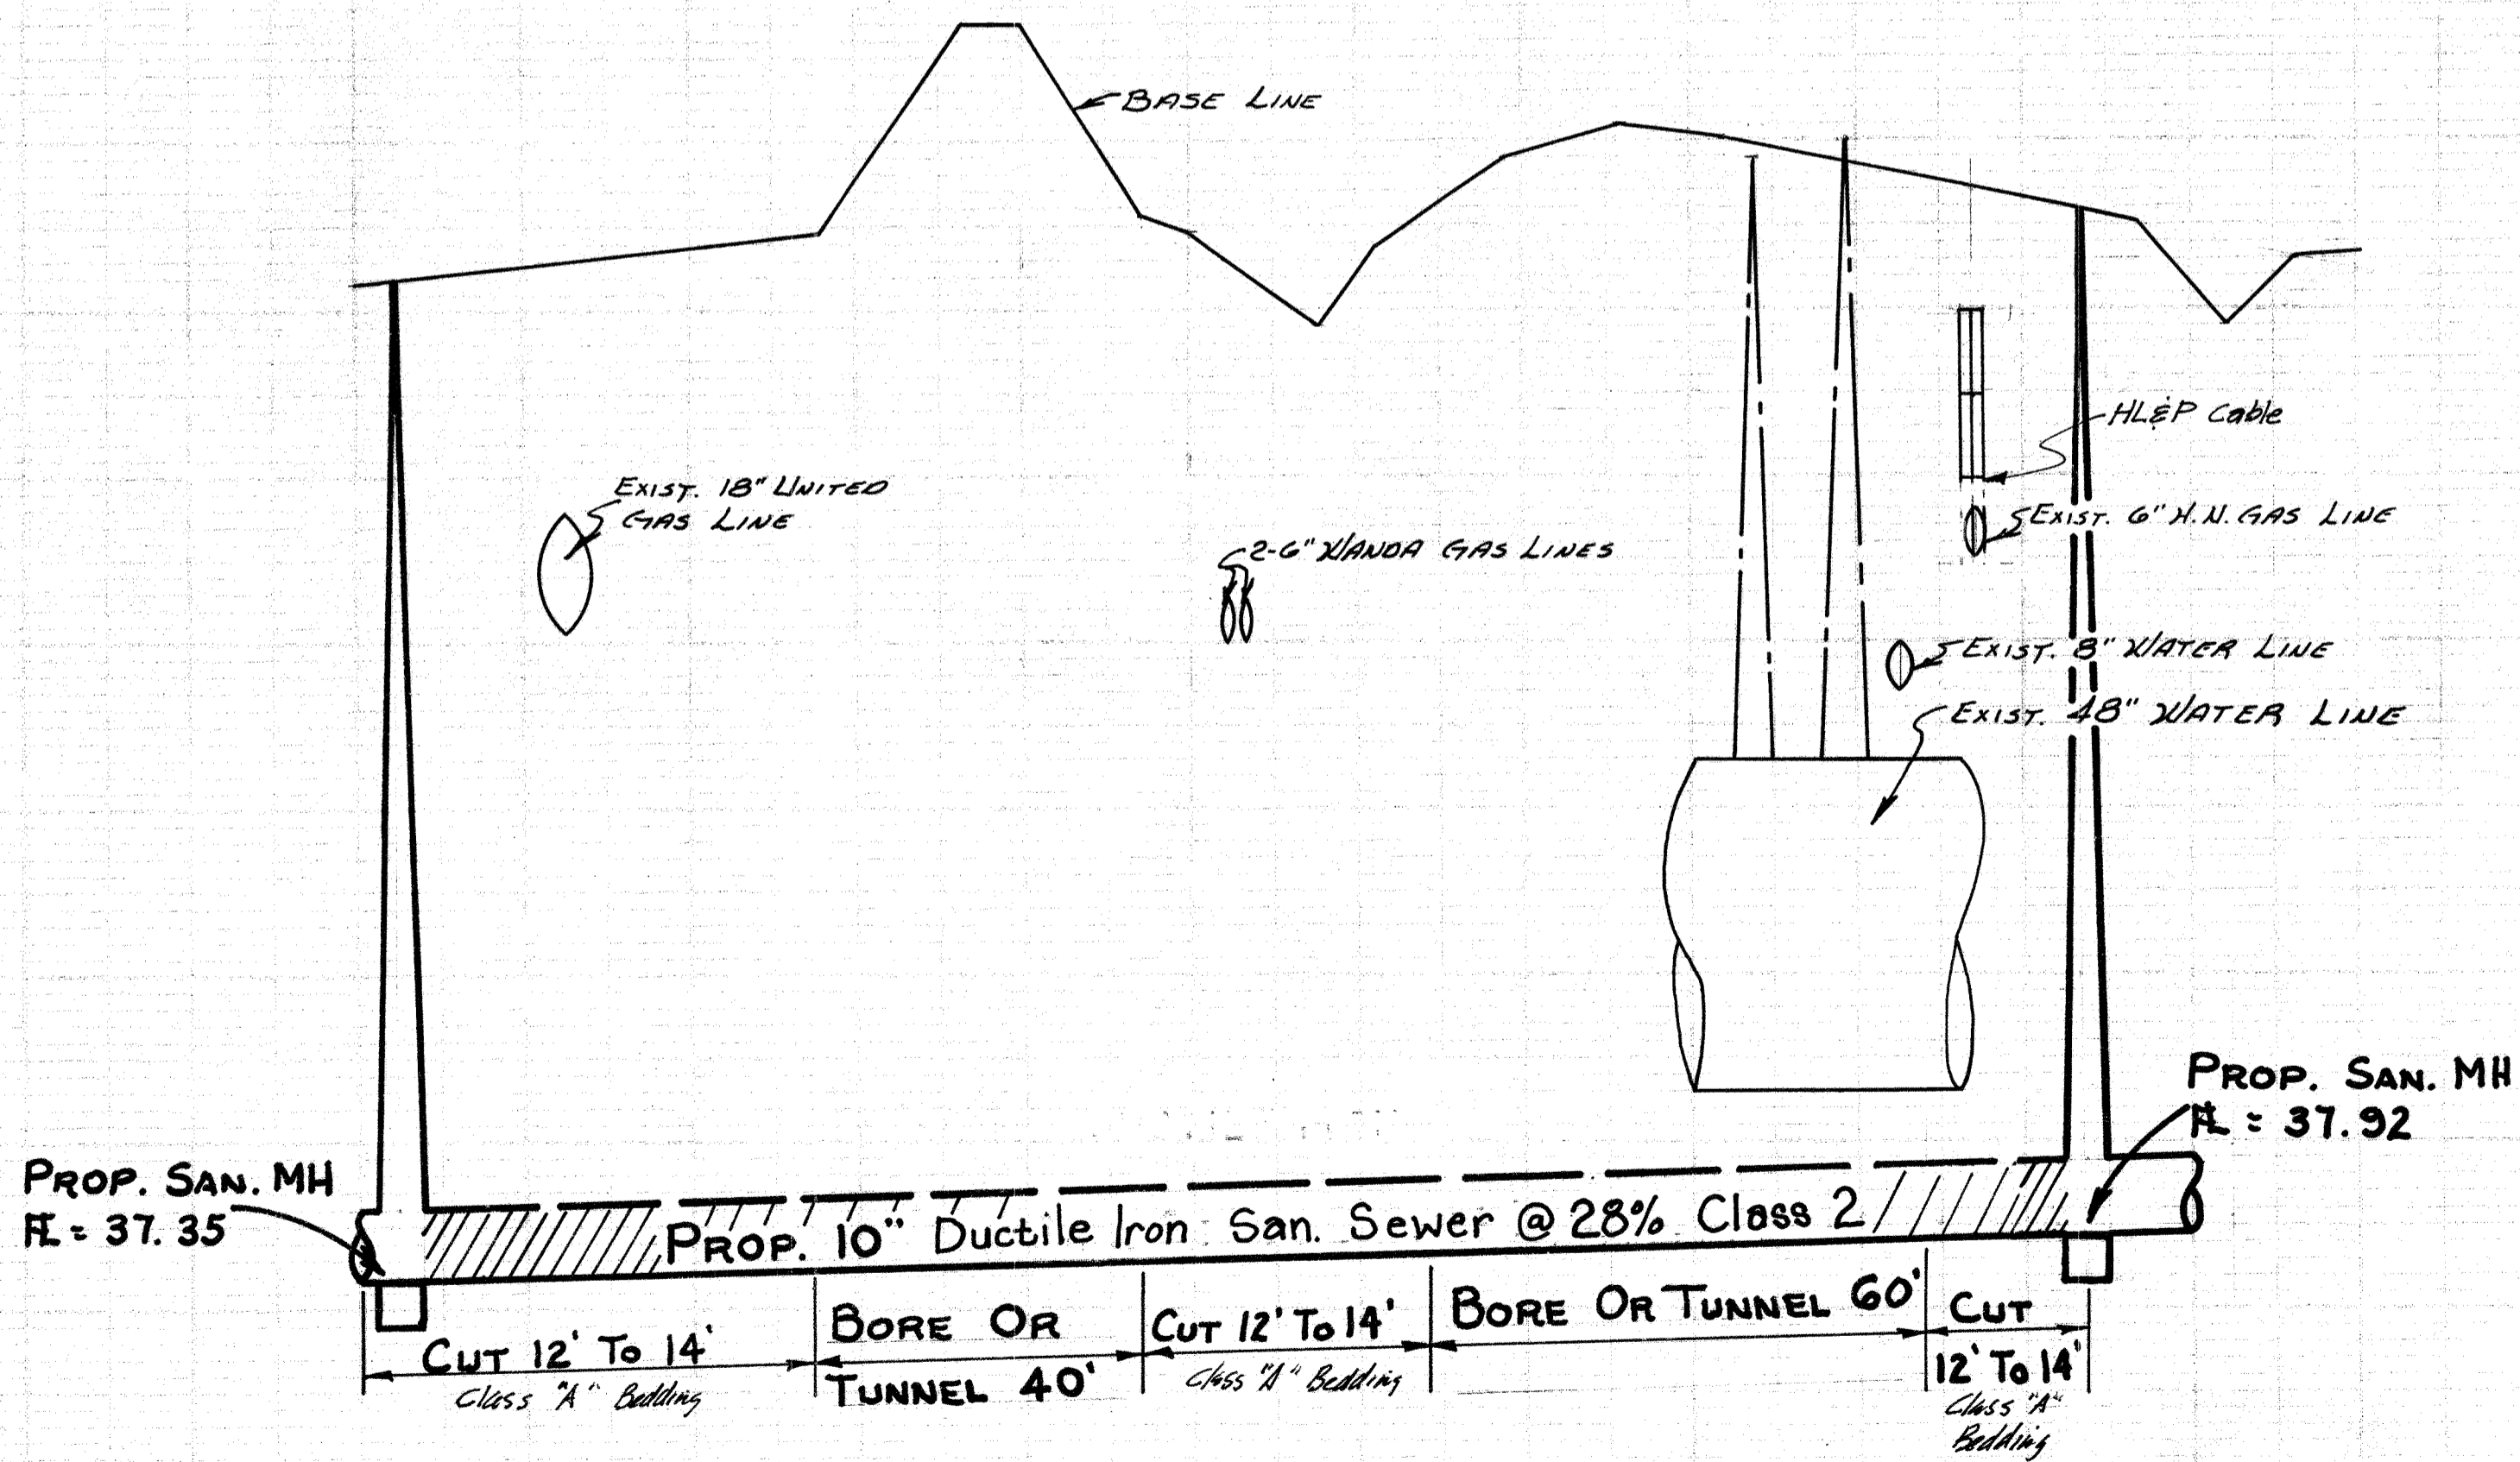 BASE LINE
HL&P Cable
EXIST. 18" UNITED
GAS LINE
EXIST. 6" H.N. GAS LINE
2-6" WANDA GAS LINES
EXIST. 8" WATER LINE
EXIST. 48" WATER LINE
PROP. SAN. MH
FL = 37.92
PROP. SAN. MH
FL = 37.35
PROP. 10" Ductile Iron San. Sewer @ 28% Class 2
CUT 12' TO 14'
Class "A" Bedding
BORE OR
TUNNEL 40'
CUT 12' TO 14'
Class "A" Bedding
BORE OR TUNNEL 60'
CUT
12' TO 14'
Class "A"
Bedding